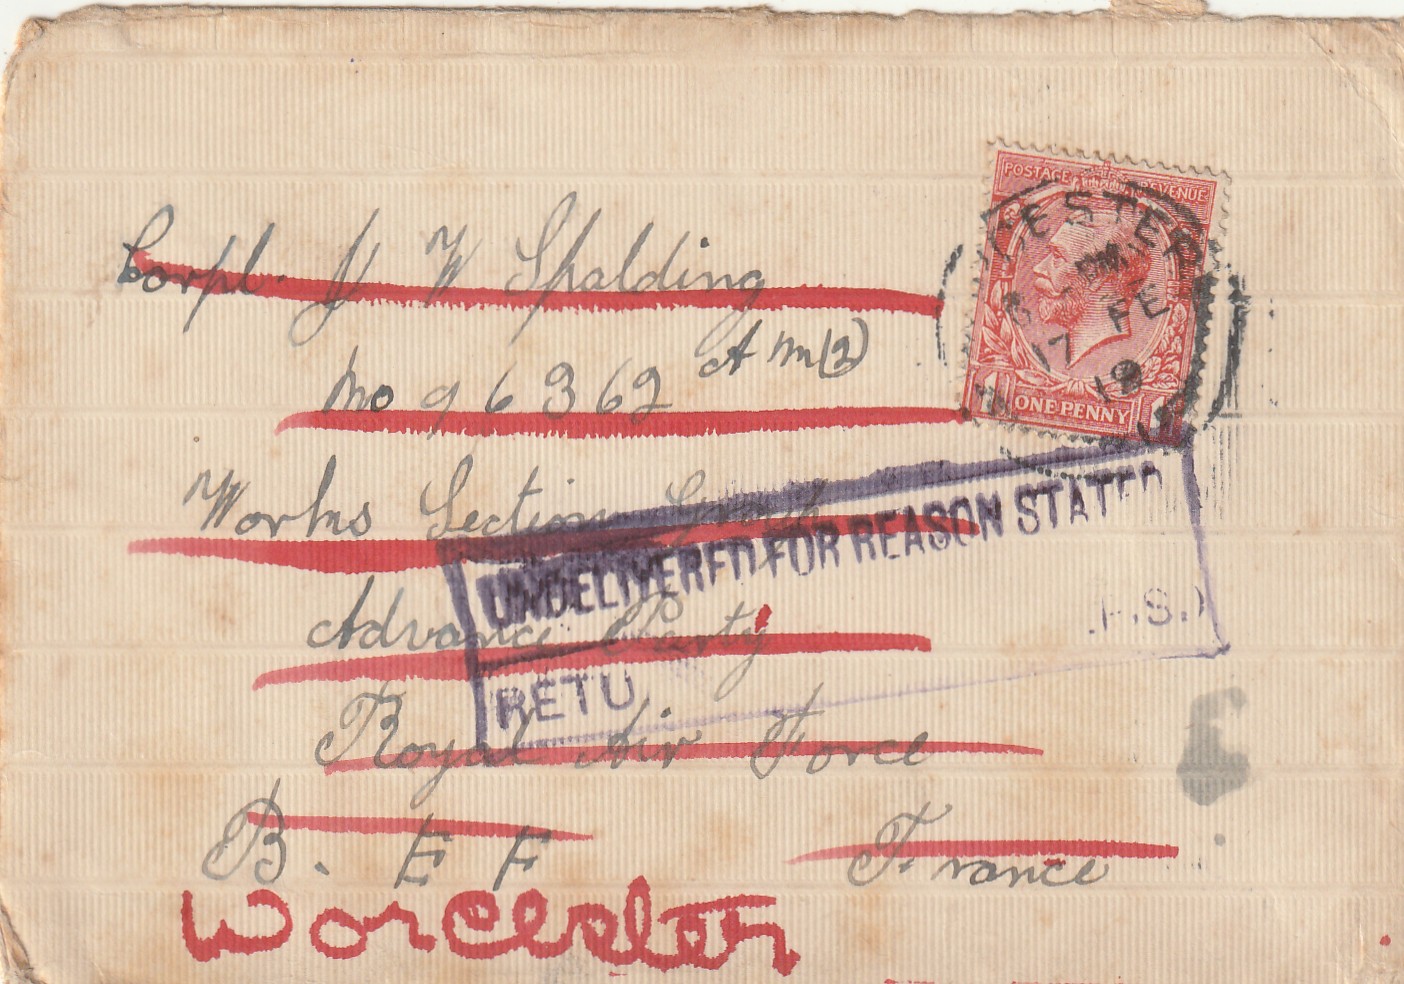 POSTAGE REVENUE
CESTER
PM
17 FE
19
ONE PENNY
Corpl. J W Spalding
No 96362 A M (2)
Works Section
UNDELIVERED FOR REASON STATED
Advance Party
P.S.)
RETU
Royal Air Force
B. E F France
Worcester